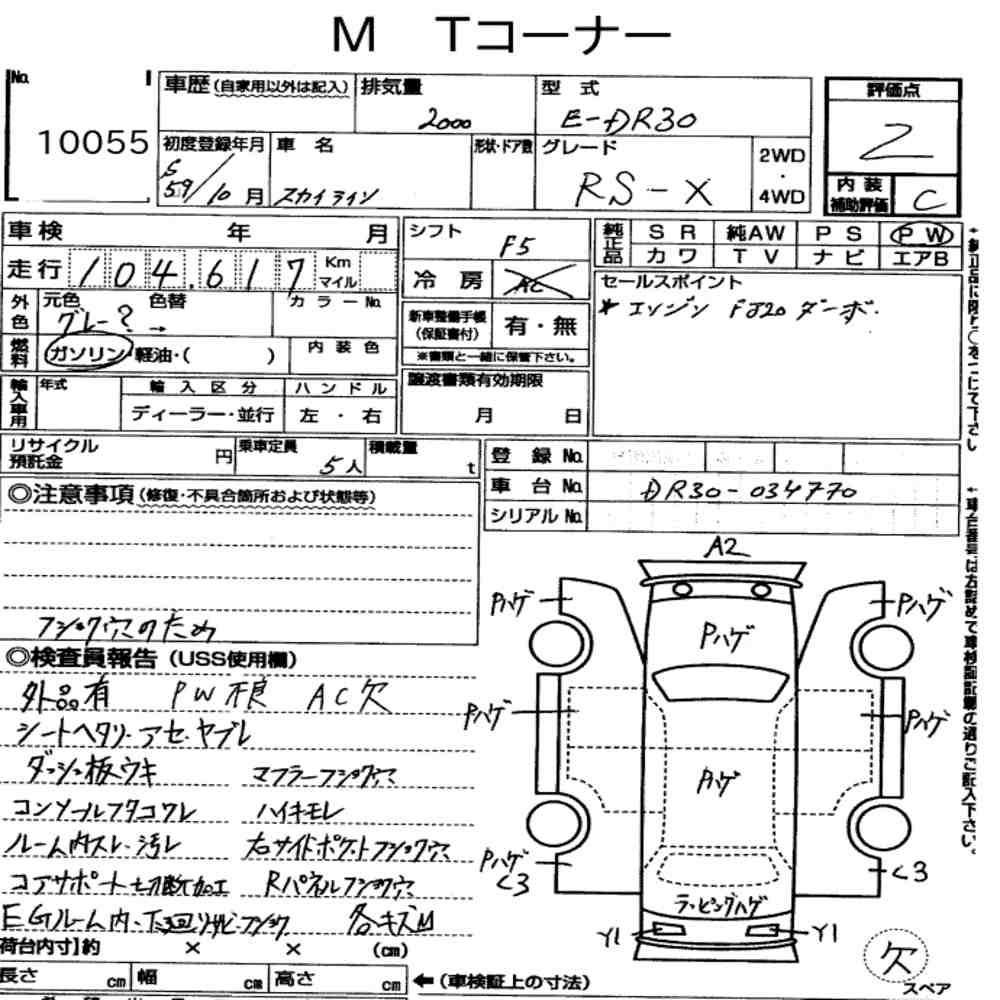 M Tコーナー
No.
10055
車歴 (自家用以外は記入)
排気量
2000
型式
E-DR30
評価点
2
初度登録年月
S
59/10月
車名
スカイライン
形状・ドア数
グレード
RS-X
2WD
・
4WD
内装
補助評価
C
車検 年 月
走行 104,617 Km
マイル
シフト
F5
冷房
AC
純正品
SR 純AW PS PW
カワ TV ナビ エアB
外色
元色 色替 カラーNo.
グレー? →
燃料
ガソリン・軽油・( )
内装色
新車整備手帳
(保証書付)
有・無
※書類と一緒に保管下さい。
セールスポイント
* エンジン FJ20 ターボ.
輸入車用
年式
輸入区分
ディーラー・並行
ハンドル
左・右
譲渡書類有効期限
月 日
リサイクル
預託金 円
乗車定員
5人
積載量
t
登録No.
車台No. DR30-034770
シリアルNo.
◎注意事項(修復・不具合箇所および状態等)
フショク穴のため
◎検査員報告(USS使用欄)
外品有 PW不良 AC欠
シートヘタリ・アセ・ヤブレ
ダッシュ板ウキ マフラーフショク穴
コンソールフタコワレ ハイキモレ
ルーム内スレ・汚レ 右サイドポケットフショク穴
コアサポート切断加工 Rパネルフショク穴
EGルーム内・下廻リサビ・フショク 各キズ凹
荷台内寸】約 × × (cm)
長さ cm 幅 cm 高さ cm
←(車検証上の寸法)
A2
Pハゲ
Pハゲ
Pハゲ
Pハゲ
Pハゲ
Pハゲ
Pハゲ
C3
C3
ラッピングハゲ
Y1
Y1
欠
スペア
車台番号は右詰めで車検証記載の通りご記入下さい。